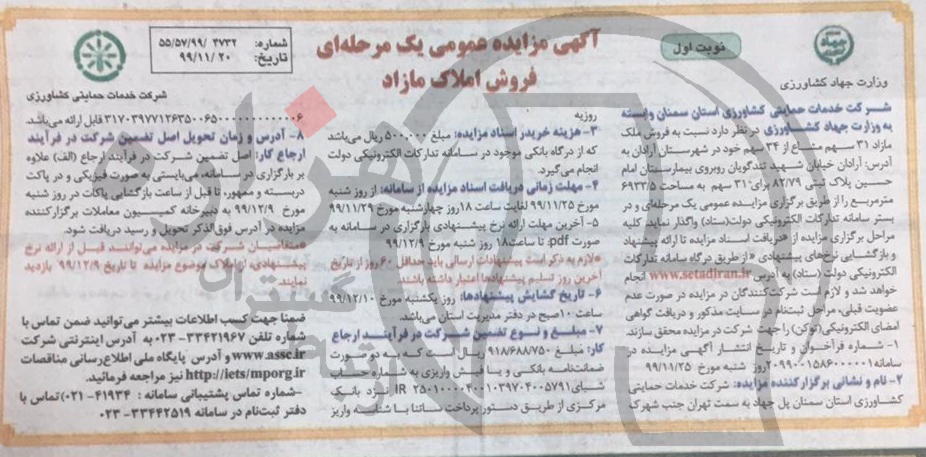 آگهی مزایده عمومی یک مرحله‌ای
فروش املاک مازاد
نوبت اول
شماره: ۵۵/۵۷/۹۹/۴۷۳۲
تاریخ: ۹۹/۱۱/۲۰
وزارت جهاد کشاورزی
شرکت خدمات حمایتی کشاورزی
شرکت خدمات حمایتی کشاورزی استان سمنان وابسته
به وزارت جهاد کشاورزی در نظر دارد نسبت به فروش ملک
مازاد ۳۱ سهم مشاع از ۳۴ سهم خود در شهرستان آرادان به
آدرس: آرادان خیابان شهید تندگویان روبروی بیمارستان امام
حسین پلاک ثبتی ۸۲/۷۹ برای ۳۱ سهم به مساحت ۶۹۳۳/۵
مترمربع را از طریق برگزاری مزایده عمومی یک مرحله‌ای و در
بستر سامانه تدارکات الکترونیکی دولت(ستاد) واگذار نماید. کلیه
مراحل برگزاری مزایده از دریافت اسناد مزایده تا ارائه پیشنهاد
و بازگشایی نرخ‌های پیشنهادی از طریق درگاه سامانه تدارکات
الکترونیکی دولت (ستاد) به آدرس www.setadiran.ir انجام
خواهد شد و لازم است شرکت‌کنندگان در مزایده در صورت عدم
عضویت قبلی، مراحل ثبت‌نام در سایت مذکور و دریافت گواهی
امضای الکترونیکی (توکن) را جهت شرکت در مزایده محقق سازند.
۱- شماره فراخوان و تاریخ انتشار آگهی مزایده در
سامانه روز شنبه مورخ ۹۹/۱۱/۲۵
۲- نام و نشانی برگزارکننده مزایده: شرکت خدمات حمایتی
کشاورزی استان سمنان پل جهاد به سمت تهران جنب شهرک
روزیه
۳- هزینه خرید اسناد مزایده: مبلغ ۵۰۰,۰۰۰ ریال می‌باشد
که از درگاه بانکی موجود در سامانه تدارکات الکترونیکی دولت
انجام می‌گیرد.
۴- مهلت زمانی دریافت اسناد مزایده از سامانه: از روز شنبه
مورخ ۹۹/۱۱/۲۵ لغایت ساعت ۱۸ روز چهارشنبه مورخ ۹۹/۱۱/۲۹
۵- آخرین مهلت ارائه نرخ پیشنهادی بارگذاری در سامانه به
صورت pdf: تا ساعت ۱۸ روز شنبه مورخ ۹۹/۱۲/۹
*لازم به ذکر است پیشنهادات ارسالی باید حداقل ۶۰ روز از تاریخ
آخرین روز تسلیم پیشنهادها اعتبار داشته باشند.
۶- تاریخ گشایش پیشنهادها: روز یکشنبه مورخ ۹۹/۱۲/۱۰
ساعت ۱۰ صبح در دفتر مدیریت استان می‌باشد.
۷- مبلغ و نوع تضمین شرکت در فرآیند ارجاع
کار: مبلغ ۹۱۸/۶۸۸/۷۵۰ ریال است که به دو صورت
ضمانت‌نامه بانکی و یا فیش واریزی به شماره حساب
شبای IR ۲۵۰۱۰۰۰۰۴۰۰۱۰۳۹۷۰۴۰۰۵۷۹۱ نزد بانک
مرکزی از طریق دستور پرداخت ساتنا با شناسه واریز
۳۱۷۰۳۹۷۷۱۲۶۳۵۰۰۶۵۰۰۰۰۰۰۰۰۰۰۰۶ قابل ارائه می‌باشد.
۸- آدرس و زمان تحویل اصل تضمین شرکت در فرآیند
ارجاع کار: اصل تضمین شرکت در فرآیند ارجاع (الف) علاوه
بر بارگزاری در سامانه، می‌بایستی به صورت فیزیکی و در پاکت
دربسته و ممهور، تا قبل از ساعت بازگشایی پاکات در روز شنبه
مورخ ۹۹/۱۲/۹ به دبیرخانه کمیسیون معاملات برگزارکننده
مزایده در آدرس فوق‌الذکر تحویل و رسید دریافت شود.
*متقاضیان شرکت در مزایده می‌توانند قبل از ارائه نرخ
پیشنهادی، از املاک موضوع مزایده تا تاریخ ۹۹/۱۲/۹ بازدید
نمایند.
ضمنا جهت کسب اطلاعات بیشتر می‌توانید ضمن تماس با
شماره تلفن ۳۳۴۲۱۹۶۷-۰۲۳ به آدرس اینترنتی شرکت
www.assc.ir و آدرس پایگاه ملی اطلاع‌رسانی مناقصات
http://iets/mporg.ir نیز مراجعه فرمائید.
-شماره تماس پشتیبانی سامانه : ۴۱۹۳۴-۰۲۱ تماس با
دفتر ثبت‌نام در سامانه ۳۳۴۴۲۵۱۹-۰۲۳